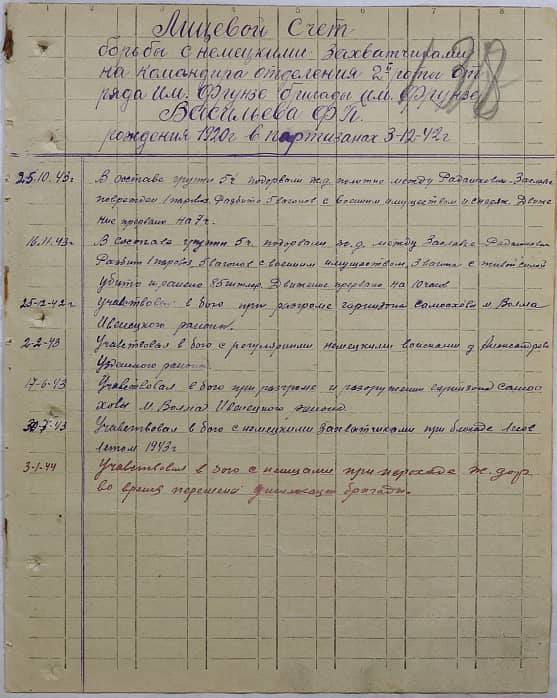 1 2 3 4 5 6 7 8
Лицевой Счет
борьбы с немецкими захватчиками
на командира отделения 2й роты от
ряда им. Фрунзе бригады им. Фрунзе
Васильева Ф.П.
рождения 1920г в партизанах 3-12-42г
138
25.10.43г В составе группы 5ч. подорвали ж.д. полотно между Радашковичи-Заславль
1 паровоз. Разбито 5 вагонов с военным имуществом и снаряж. Движе
ние прервано на 7ч.
16.11.43г В составе группы 5ч. подорвали ж.д. между Заславль-Радашковичи
Разбит 1 паровоз, 5 вагонов с военным имуществом, 3 вагона с живой силой
убито и ранено 85 гитлер. Движение прервано на 10 часов
25-12-42г Учавствовал в бою при разгроме гарнизона самоохова м. Волма
Ивенецкого района.
2-2-43 Учавствовал в бою с регулярными немецкими войсками д.
Узденского района.
17-6-43 Учавствовал в бою при разгроме и разоружении гарнизона самоо
ховы м. Волма Ивенецкого района
30-7-43 Учавствовал в бою с немецкими захватчиками при блокаде лесов
летом 1943г
3-1-44 Учавствовал в бою с немцами при переходе ж. дор.
во время дислокации бригады.